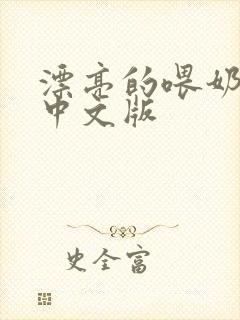 漂亮的喂奶
中文版
史全富